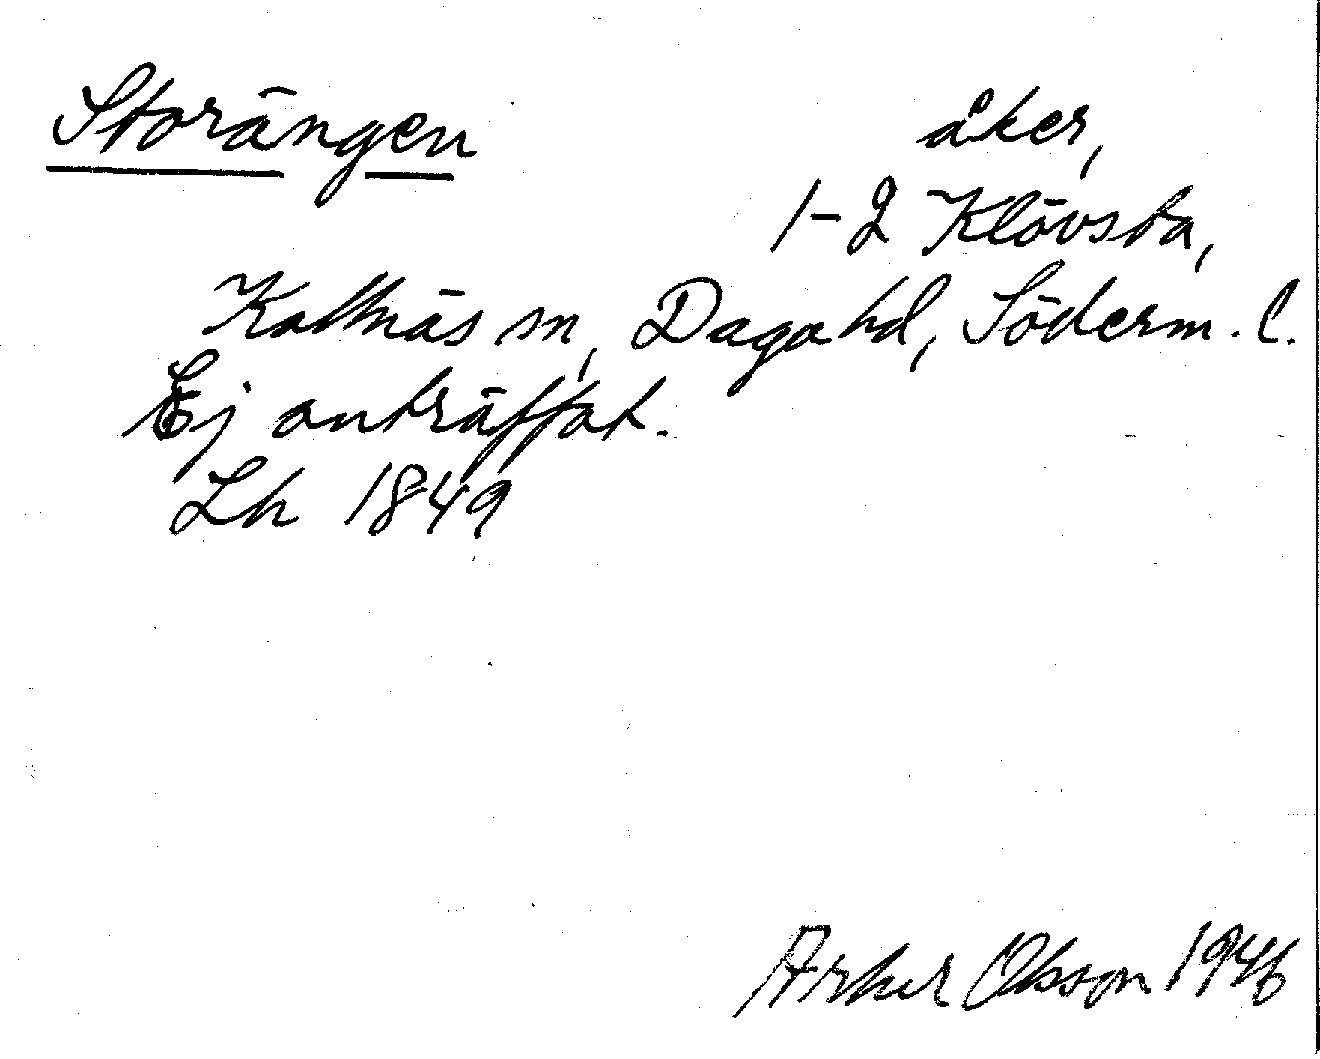 Storängen
åker,
1-2 Klövsta,
Kattnäs sn, Daga hd, Söderm. l.
Ej anträffat.
Lh 1849
Artur Olsson 1946